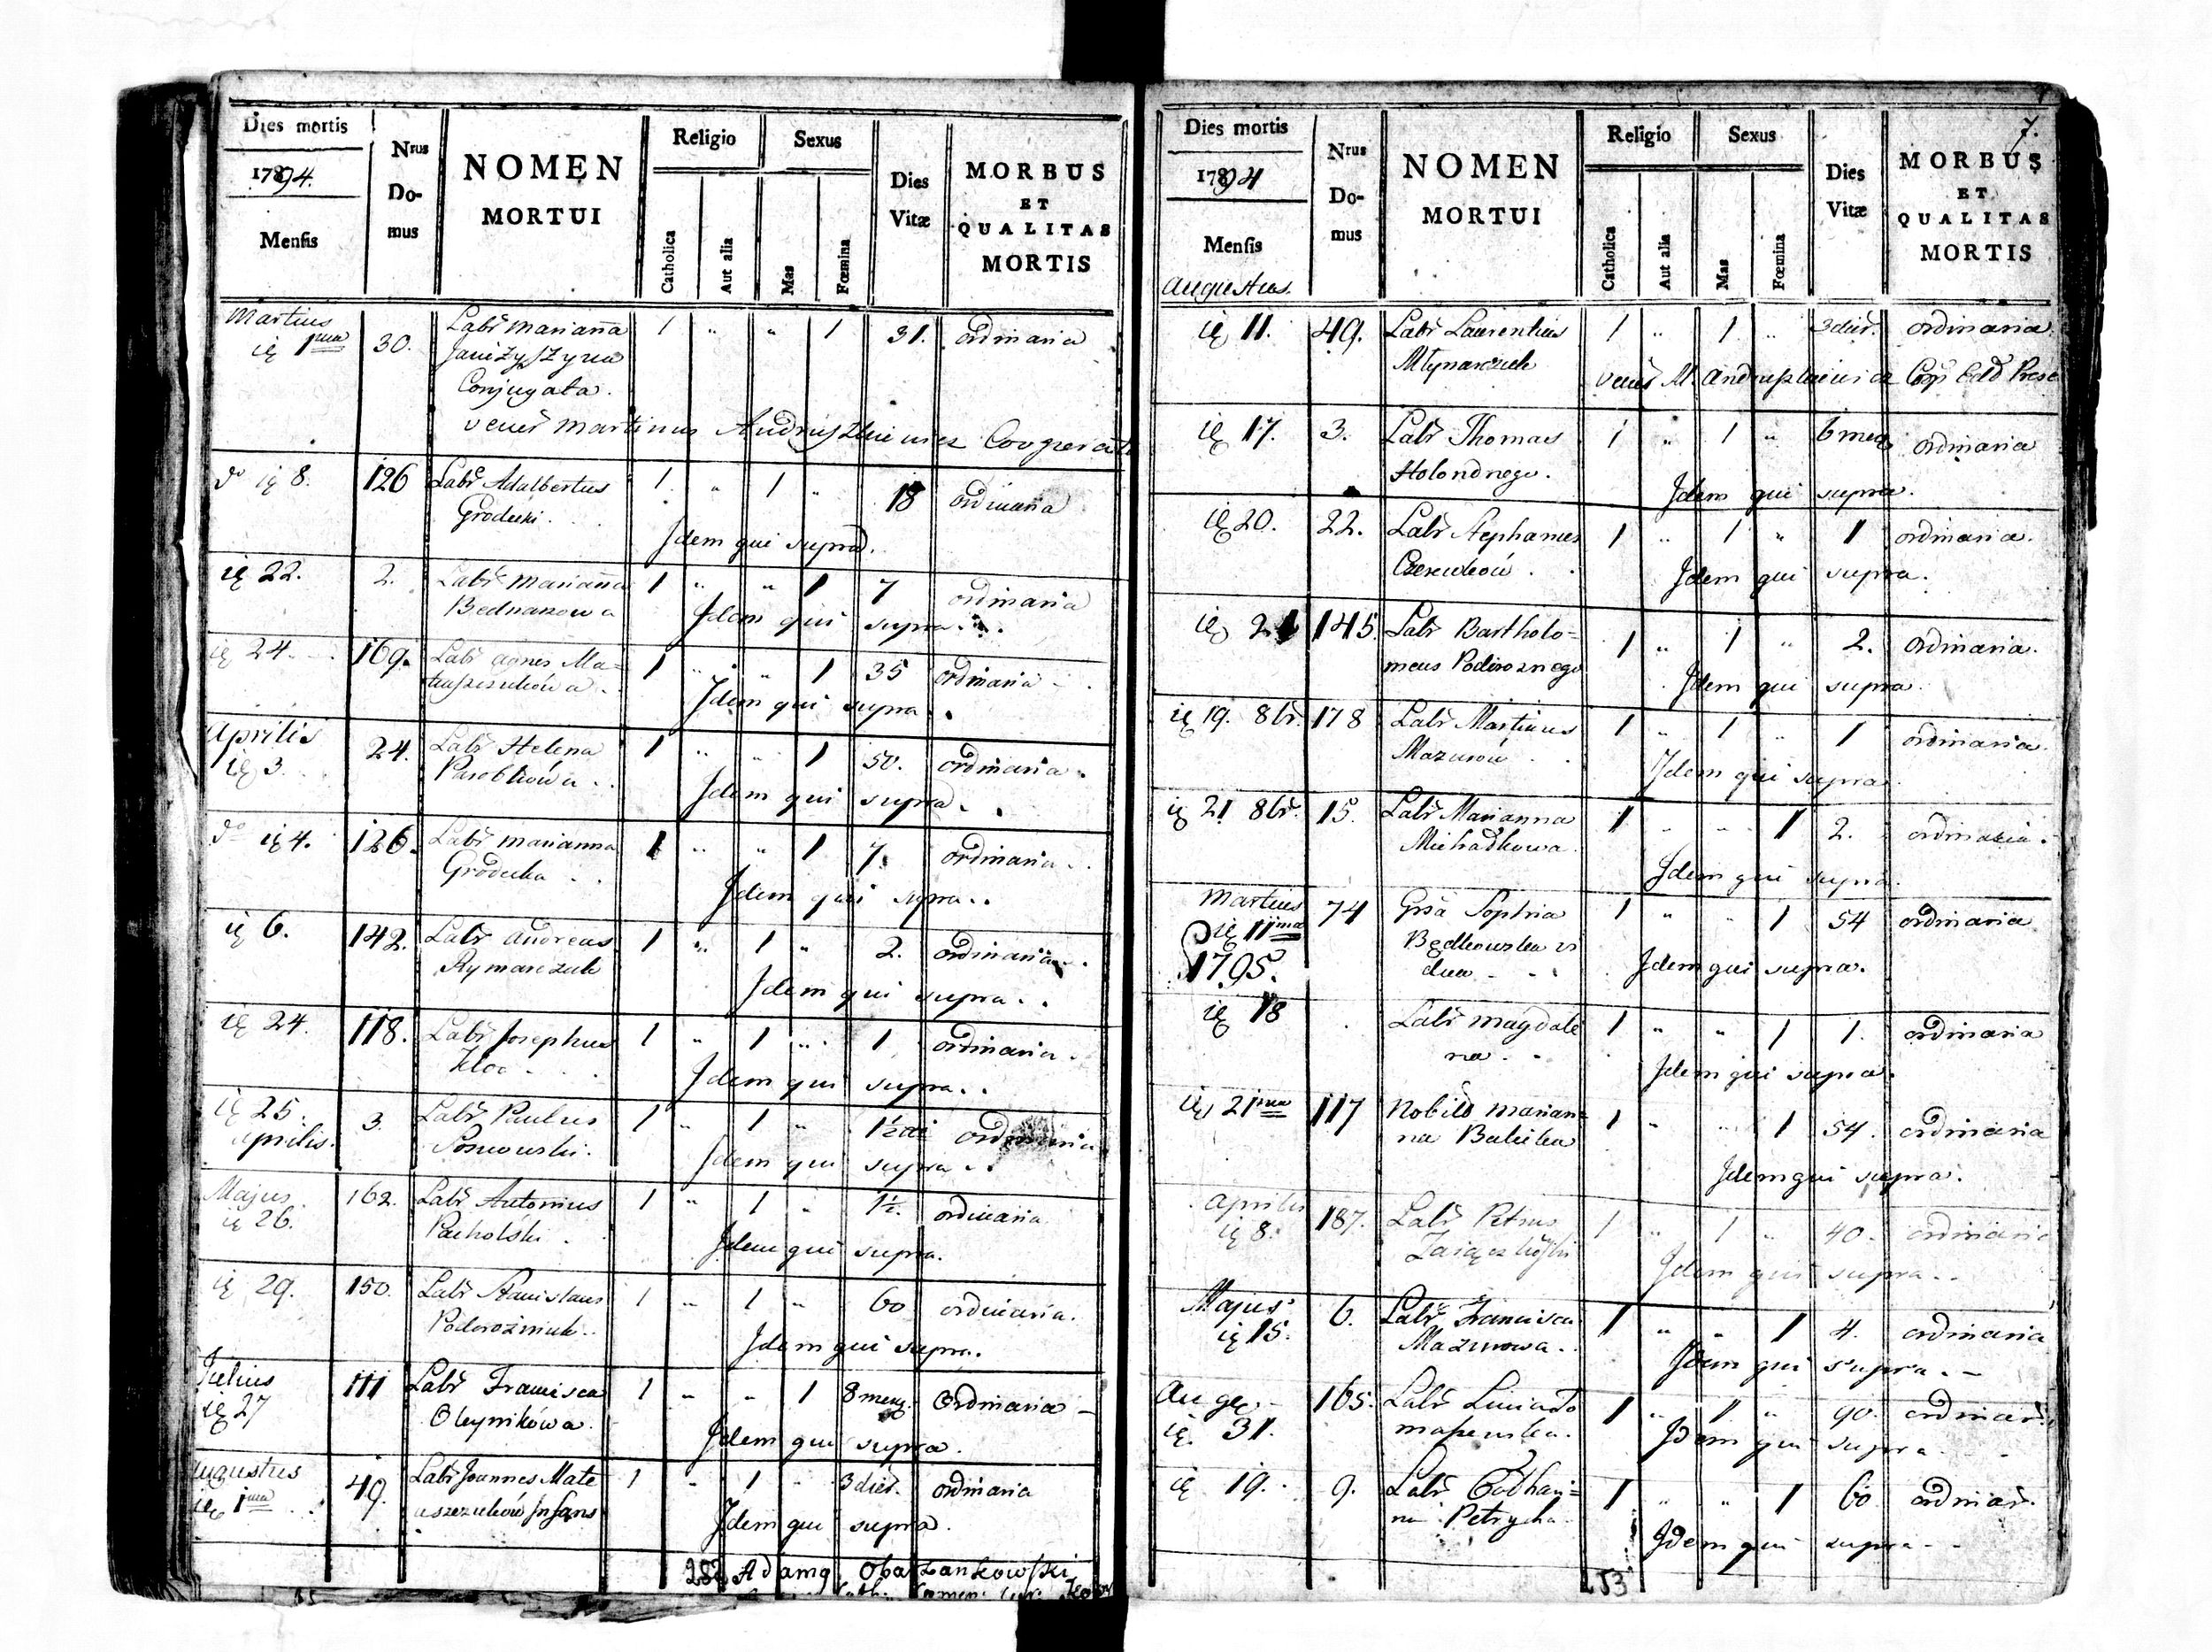 Dies mortis
1794.
Mensis
Nrus Do-mus
NOMEN
MORTUI
Religio
Catholica
Aut alia
Sexus
Mas
Fœmina
Dies
Vitæ
MORBUS
ET
QUALITAS
MORTIS
Martius
ię 1ma 30. Labr Marianna 1 " " 1 31. ordinaria
Conjugata.
Martinus Cooperat
do ię 8. 126 Labr Adalbertus 1. " 1 " 18 ordinaria
Grodecki.
Idem qui supra.
ię 22. 2. Labr Marianna 1 " " 1 7 ordinaria
Bednarzowa Idem qui supra.
ię 24. 169. Labr Agnes Ma= 1 " " 1 35 ordinaria
Idem qui supra.
Aprilis
ię 3. 24. Labr Helena 1 " " 1 50. ordinaria.
Parobkówa.. Idem qui supra.
do ię 4. 126. Labr Marianna 1 " " 1 7. ordinaria..
Grodecka.. Idem qui supra..
ię 6. 142. Labr Andreas 1 " 1 " 2. ordinaria..
Rymarczuk Idem qui supra..
ię 24. 118. Labr Josephus 1 " 1 " 1 ordinaria.
Idem qui supra..
ię 25. 3. Labr Paulus 1 " 1 " 1½ ordinaria
Aprilis. Idem qui supra..
Majus
ię 26. 162. Labr Antonius 1 " 1 " 1½. ordinaria
Pacholski. Idem qui supra.
ię 29. 150. Labr Stanislaus 1 " 1 " 60 ordinaria.
Podorożniuk.. Idem qui supra.
Julius
ię 27 111 Labr Francisca 1 " " 1 8 mens. Ordinaria
Oleynikówa. Idem qui supra.
Augustus
ię 1ma 49. Labr Joannes Mate 1 " 1 " 3 dier. ordinaria
uszczuków Infans Idem qui supra.
252 Adamg Obarzankowski
Dies mortis
1794
Mensis
Augustus.
Nrus
Do-
mus
NOMEN
MORTUI
Religio
Catholica
Aut alia
Sexus
Mas
Fœmina
Dies
Vitæ
7.
MORBUS
ET
QUALITAS
MORTIS
ię 11. 49. Labr Laurentius 1 " 1 " 3 dier. ordinaria
Młynarczuk
ię 17. 3. Labr Thomas 1 " 1 " 6 mens ordinaria
Holondnego. Idem qui supra.
ię 20. 22. Labr Stephanus 1 " 1 " 1 ordinaria.
Idem qui supra.
ię 21 145. Labr Bartholo= 1 " 1 " 2. ordinaria.
meus Podoroznego Idem qui supra.
ię 19. 8br. 178 Labr Martinus 1 " 1 " 1 ordinaria.
Mazurów.. Idem qui supra.
ię 21 8br. 15. Labr Marianna 1 " " 1 2. ordinaria.
Michadkowa. Idem qui supra.
Martius
ię 11ma 74 Grsa Sophia 1 " " 1 54 ordinaria
1795. Będkowska vi
dua Idem qui supra.
ię 18 Labr Magdale 1 " " 1 1. ordinaria
na. Idem qui supra.
ię 21ma 117 Nobilis Marian= 1 " " 1 54. ordinaria
na
Idem qui supra.
Aprilis
ię 8. 187. Labr Petrus 1 " 1 " 40. ordinaria
Idem qui supra..
Majus
ię 15. 6. Labr Francisca 1 " " 1 4. ordinaria
Mazurowa. Idem qui supra.
Aug
ię 31. 165. 1 " 1 " 90. ordinar.
Idem qui supra
ię 19. 9. Labr 1 " " 1 60 ordinar.
Petrycha Idem qui supra
253